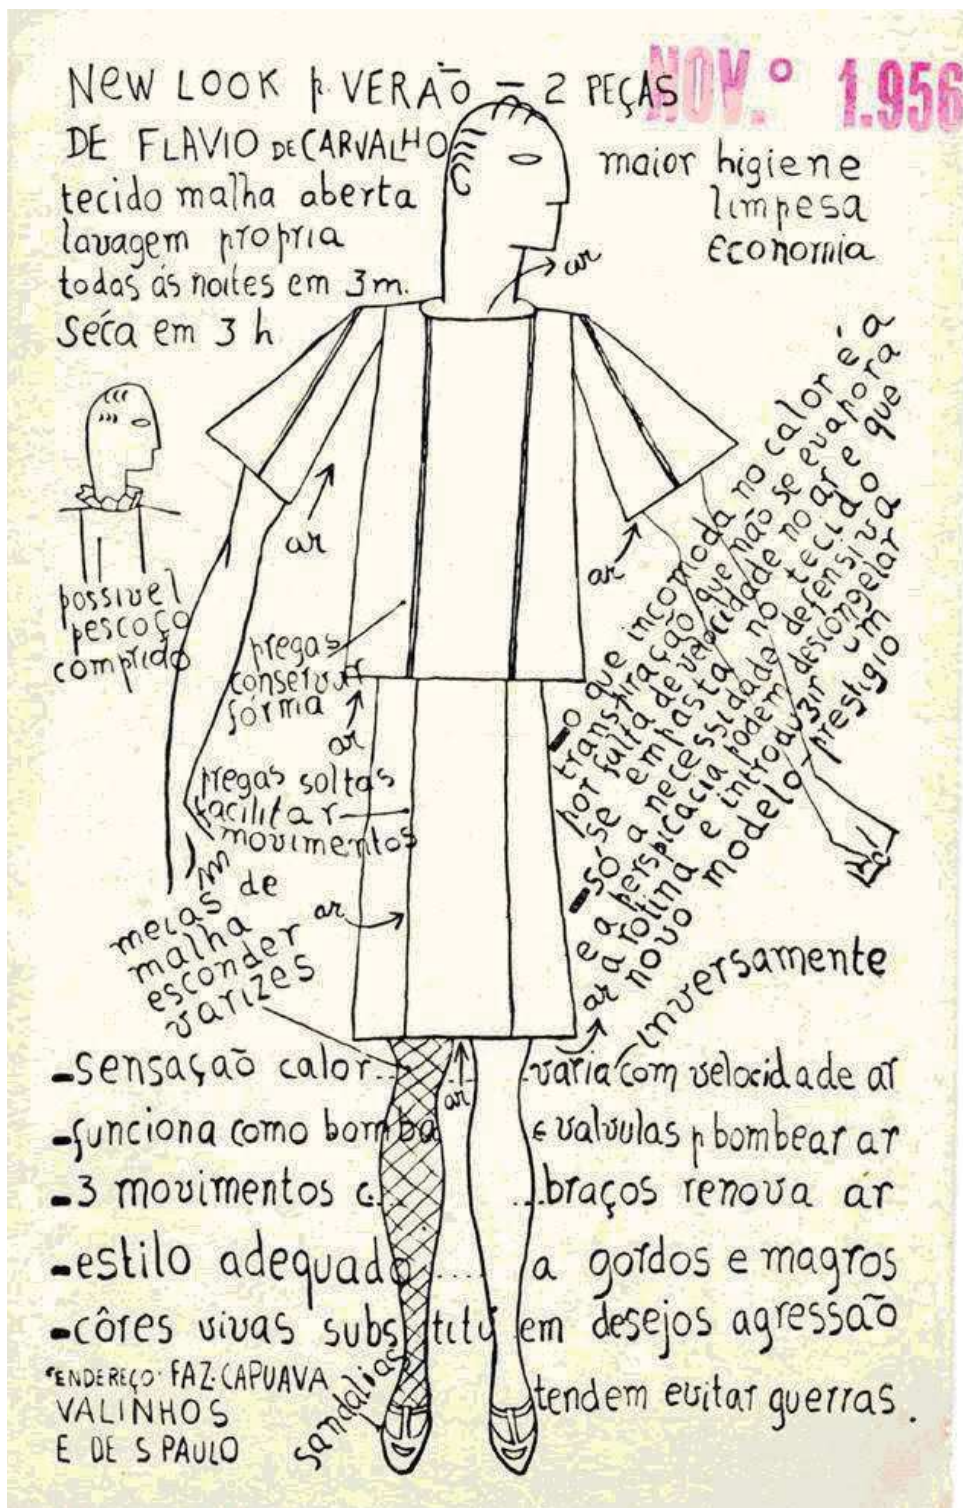 NEW LOOK p. VERÃO – 2 PEÇAS
NOV.º 1.956
DE FLAVIO DE CARVALHO
tecido malha aberta
lavagem propria
todas ás noites em 3m.
Séca em 3 h
maior higiene
limpesa
economia
ar
possivel
pescoço
comprido
ar
ar
pregas
conservar
forma
ar
pregas soltas
facilitar
movimentos
meias de
malha
esconder
varizes
ar
–o que incomoda no calor é a
transpiração que não se evapora
por falta de velocidade no ar e que
se empasta no tecido
–só a necessidade defensiva
e a perspicacia podem descongelar
a rotina e introduzir um
novo modelo-prestigio
ar
ar
inversamente
-sensação calor... ..varia com velocidade ar
-funciona como bomba e valvulas p bombear ar
-3 movimentos c... ...braços renova ar
-estilo adequado.... a gordos e magros
-côres vivas substituem desejos agressão
tendem evitar guerras.
ENDEREÇO: FAZ. CAPUAVA
VALINHOS
E DE S PAULO
sandalias